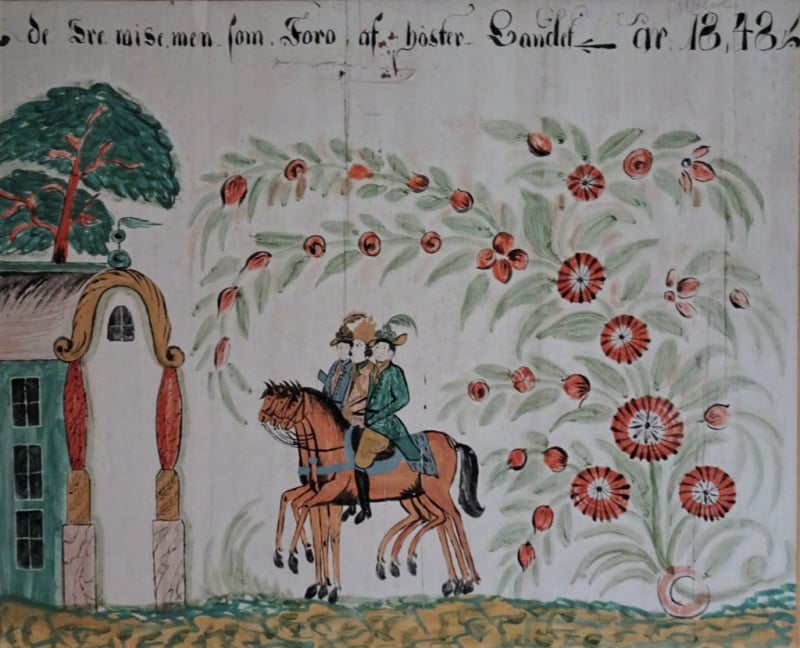 de Tre wise men som Foro af höster Landet år 18,48